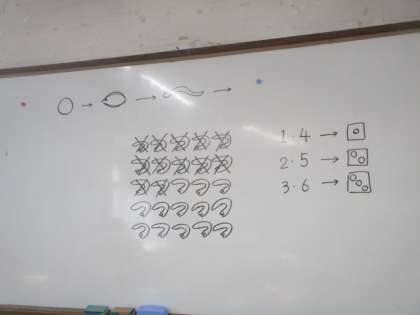 1.4 →
2.5 →
3.6 →